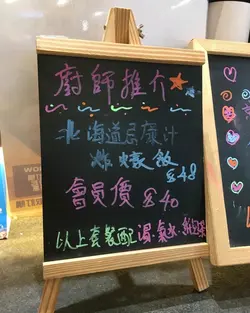 廚師推介
北海道忌廉汁
炸蠔飯 $48
會員價 $40
以上套裝配湯、氣水、